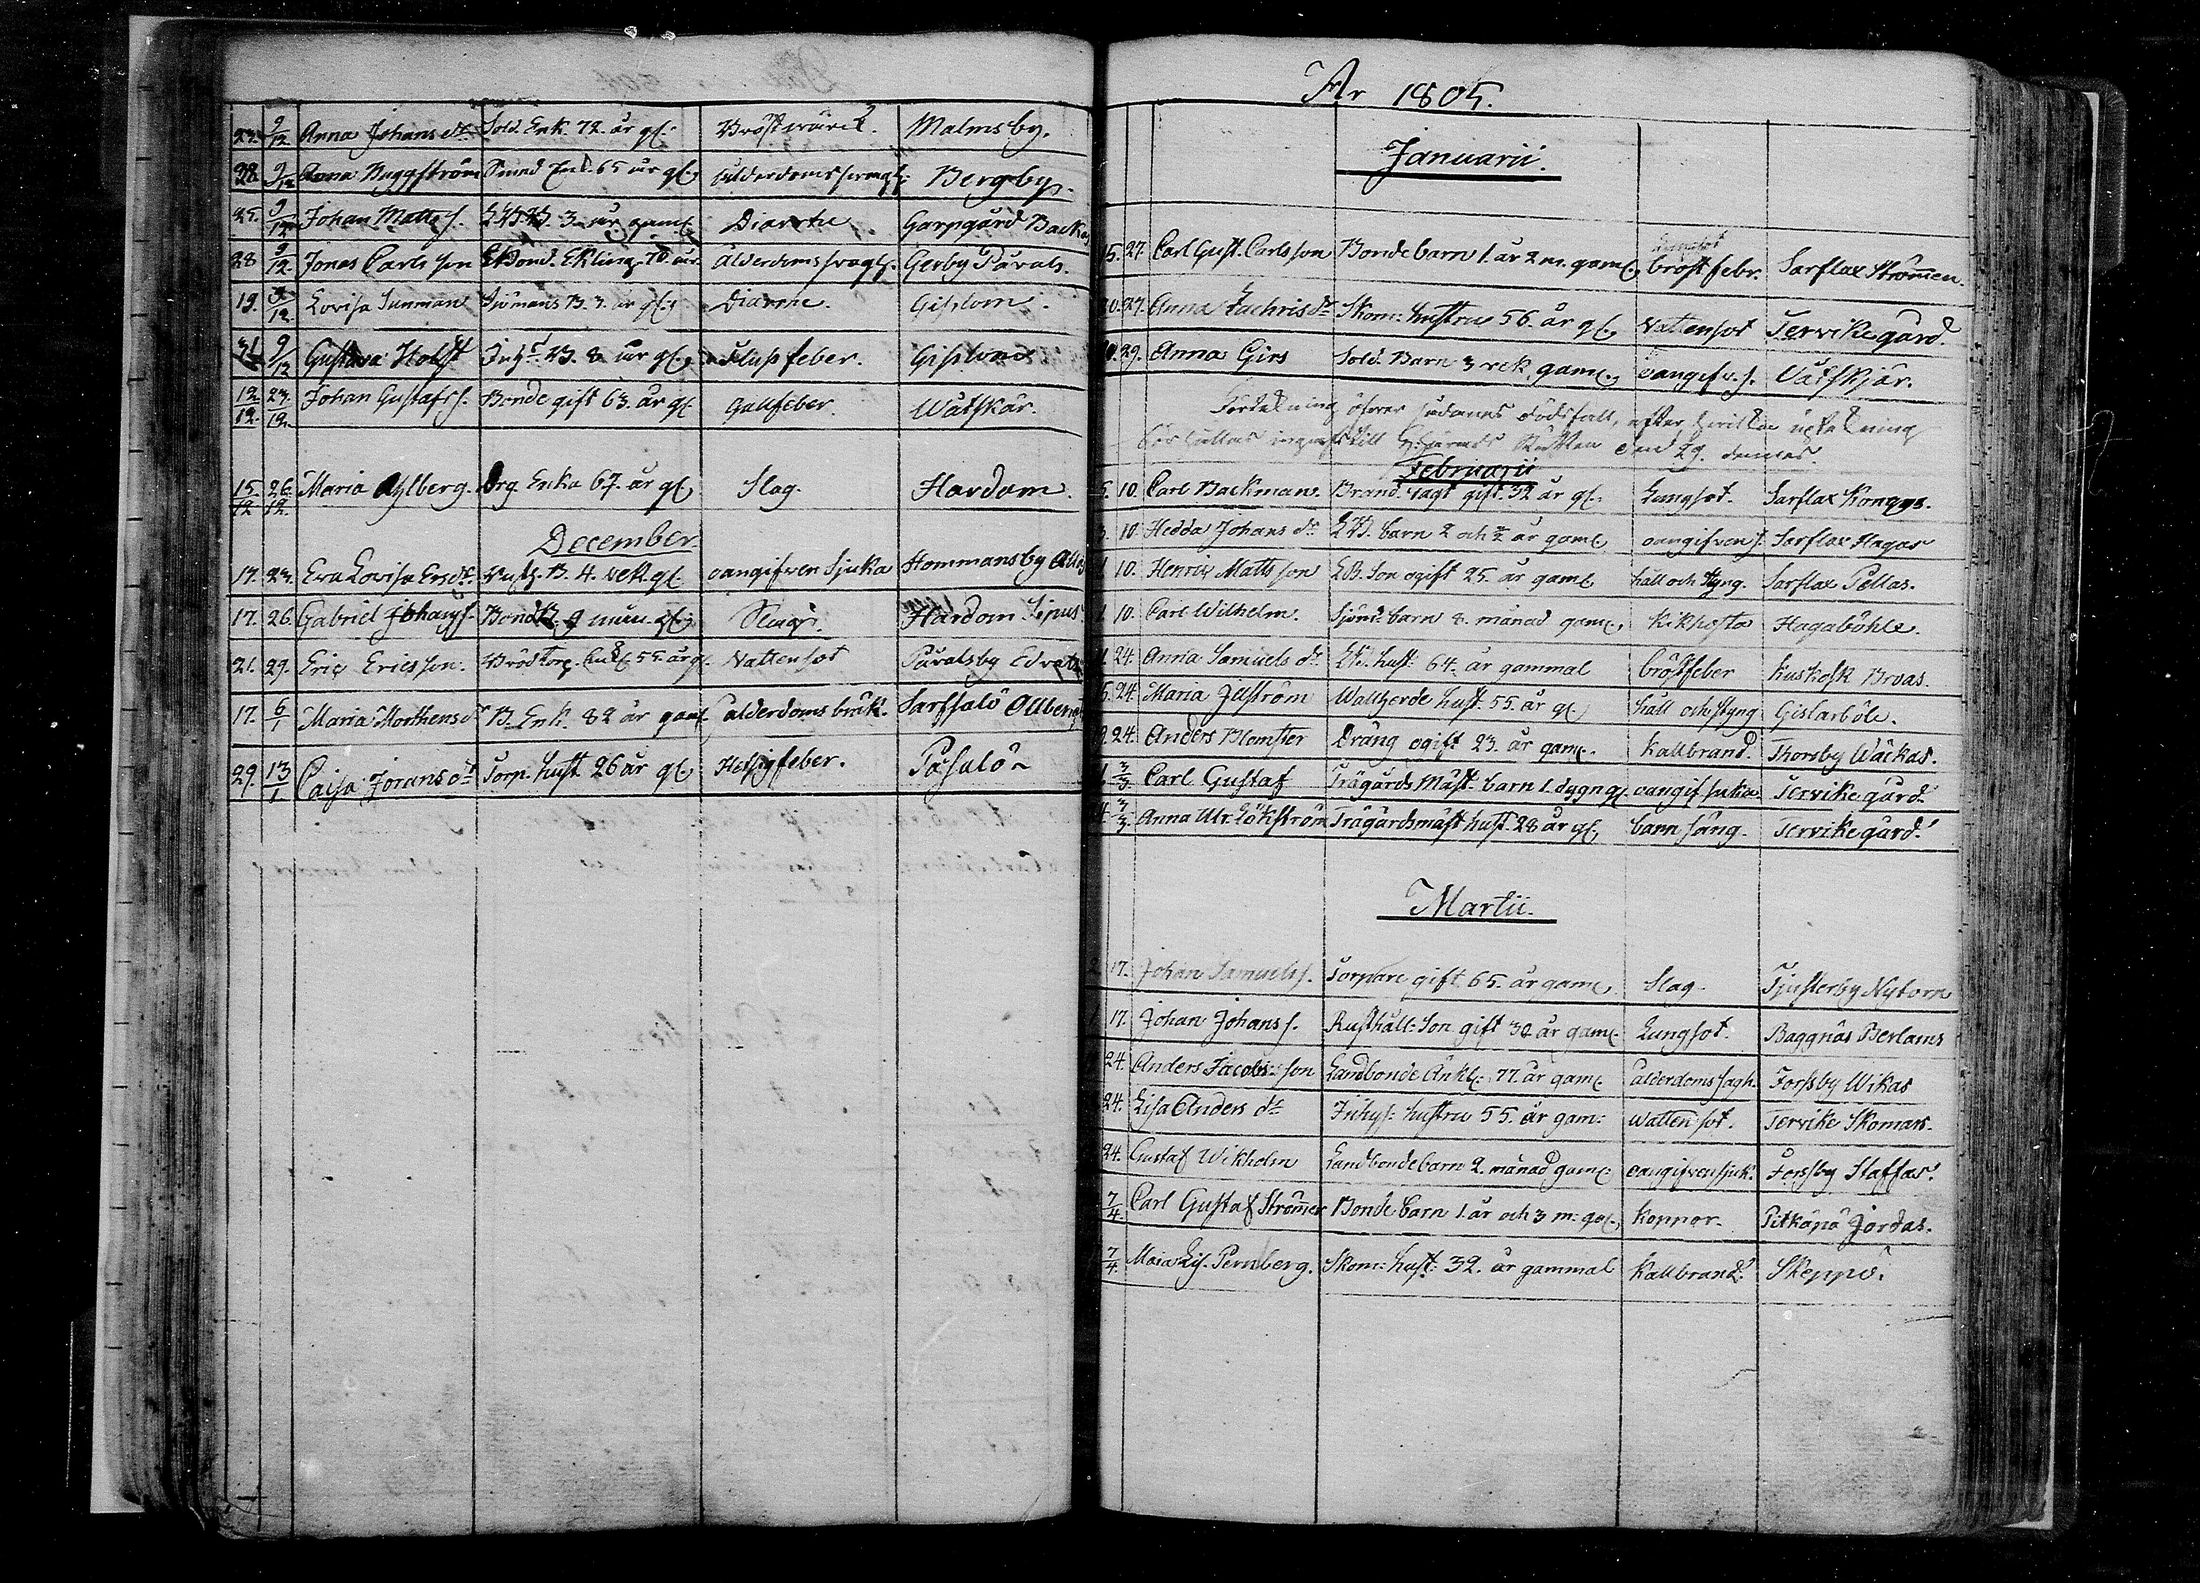 23. 9/12 Anna Johans dr Sold. Enk. 72. år gl. Bröstwärck. Malmsby.
28. 9/12 Anna Buggström Smed Enk. 65 år gl. ålderdomssvagh. Bergby.
25. 9/12 Johan Matts s. 3 år gaml. Diarrhe Garpgård Backas
28 9/12. Jonas Carls son Ekling. 70. år ålderdoms svagh. Gerby Påvals.
19. 9/12 Lovisa Sunman Sjömans B. 3. år gl. Diarrhe. Gislom.
31 9/12 Gustava Holst Inhs B. 8 år gl. Flussfeber. Gislom
12/12. 23/12. Johan Gustafs s. Bonde gift 63. år gl Gallfeber. Wåtskär.
15/12 26/12. Maria Ahlberg. Enka 67. år gl. Slag. Hardom.
December.
17. 23. Eva Lovisa Ersdr. B. 4. vek. gl. oangifven Sjuka Hommansby
17. 26. Gabriel Johans s. Bond B. 9 mån. gl. Slag. Hardom Sipus
21. 29. Eric Ericsson. 55. år gl. Vattensot Påvalsby
17. 6/1 Maria Morthens dr B. Enk. 82 år gaml. ålderdoms bräk. Sarfsalö
29. 13/1. Caisa Jörans dr Torp. hust. 26 år gl. Hetsig feber. Påsalö
År 1805.
Januarii.
15. 27. Carl Gust. Carlsson Bonde barn 1. år 2 m. gaml. Lungsot bröstfebr. Sarflax Strömen.
20. 27. Anna Zachris dr Skom. hustru 56. år gl. Vattensot Tervike gård.
29. Anna Girs Sold. Barn 3 vek. gaml. oangifv. s. Våtskjär.
Förtekning öfver sådanes dödsfall, efter
till den 29. dennes.
Februarii
5. 10. Carl Backman. gift. 32 år gl. Lungsot. Sarflax Konngs.
3. 10. Hedda Johans dr barn 2 och år gaml. oangifven s. Sarflax Hagas
10. Henric Mattsson Son ogift 25. år gaml. håll och styng. Sarflax Pellas.
10. Carl Wilhelm. Sjöm. barn 8. månad gaml. Kikhosta Hagaböhle.
24. Anna Samuels dr. hust. 64. år gammal bröstfeber Kuskosk Broas.
6. 24. Maria Jilström Wallherde hust. 55. år gl håll och styng Gislarböle.
9. 24. Anders Blomster Dräng ogift 23. år gaml. Kallbrand. Thorsby Wäckas.
1 3/3 Carl Gustaf Trägårds Mäst. barn 1. dygn gl. oangif sukia Tervike gård.
4. 3/3 Anna Ulr. Lökström Trägårdsmäst hust. 28 år gl. barnsäng. Tervike gård.
Martii.
17. Johan Samuels s. Torpare gift 65. år gaml. Slag. Tjusterby Nytorp
17. Johan Johans s. Rusthåll. Son gift 30 år gaml. Lungsot. Baggnäs Berlams
24. Anders Jacobs son Landbonde Änkl. 77. år gaml. ålderdoms sagh. Forsby Wikas
24. Lisa Anders dr Inhys. hustru 55. år gam. Watten sot. Tervike Skomars.
24. Gustaf Wikholm Landbonde barn 2. månad gaml. oangifven sjuk. Forsby Staffas.
7/4. Carl Gustaf Strömer Bonde barn 1. år och 3 m. gal. Koppor. Pitkäpä Jordas.
7/4. Maia Lis. Pernberg. Skom. hust. 32. år gammal Kallbrand. Skeppö.